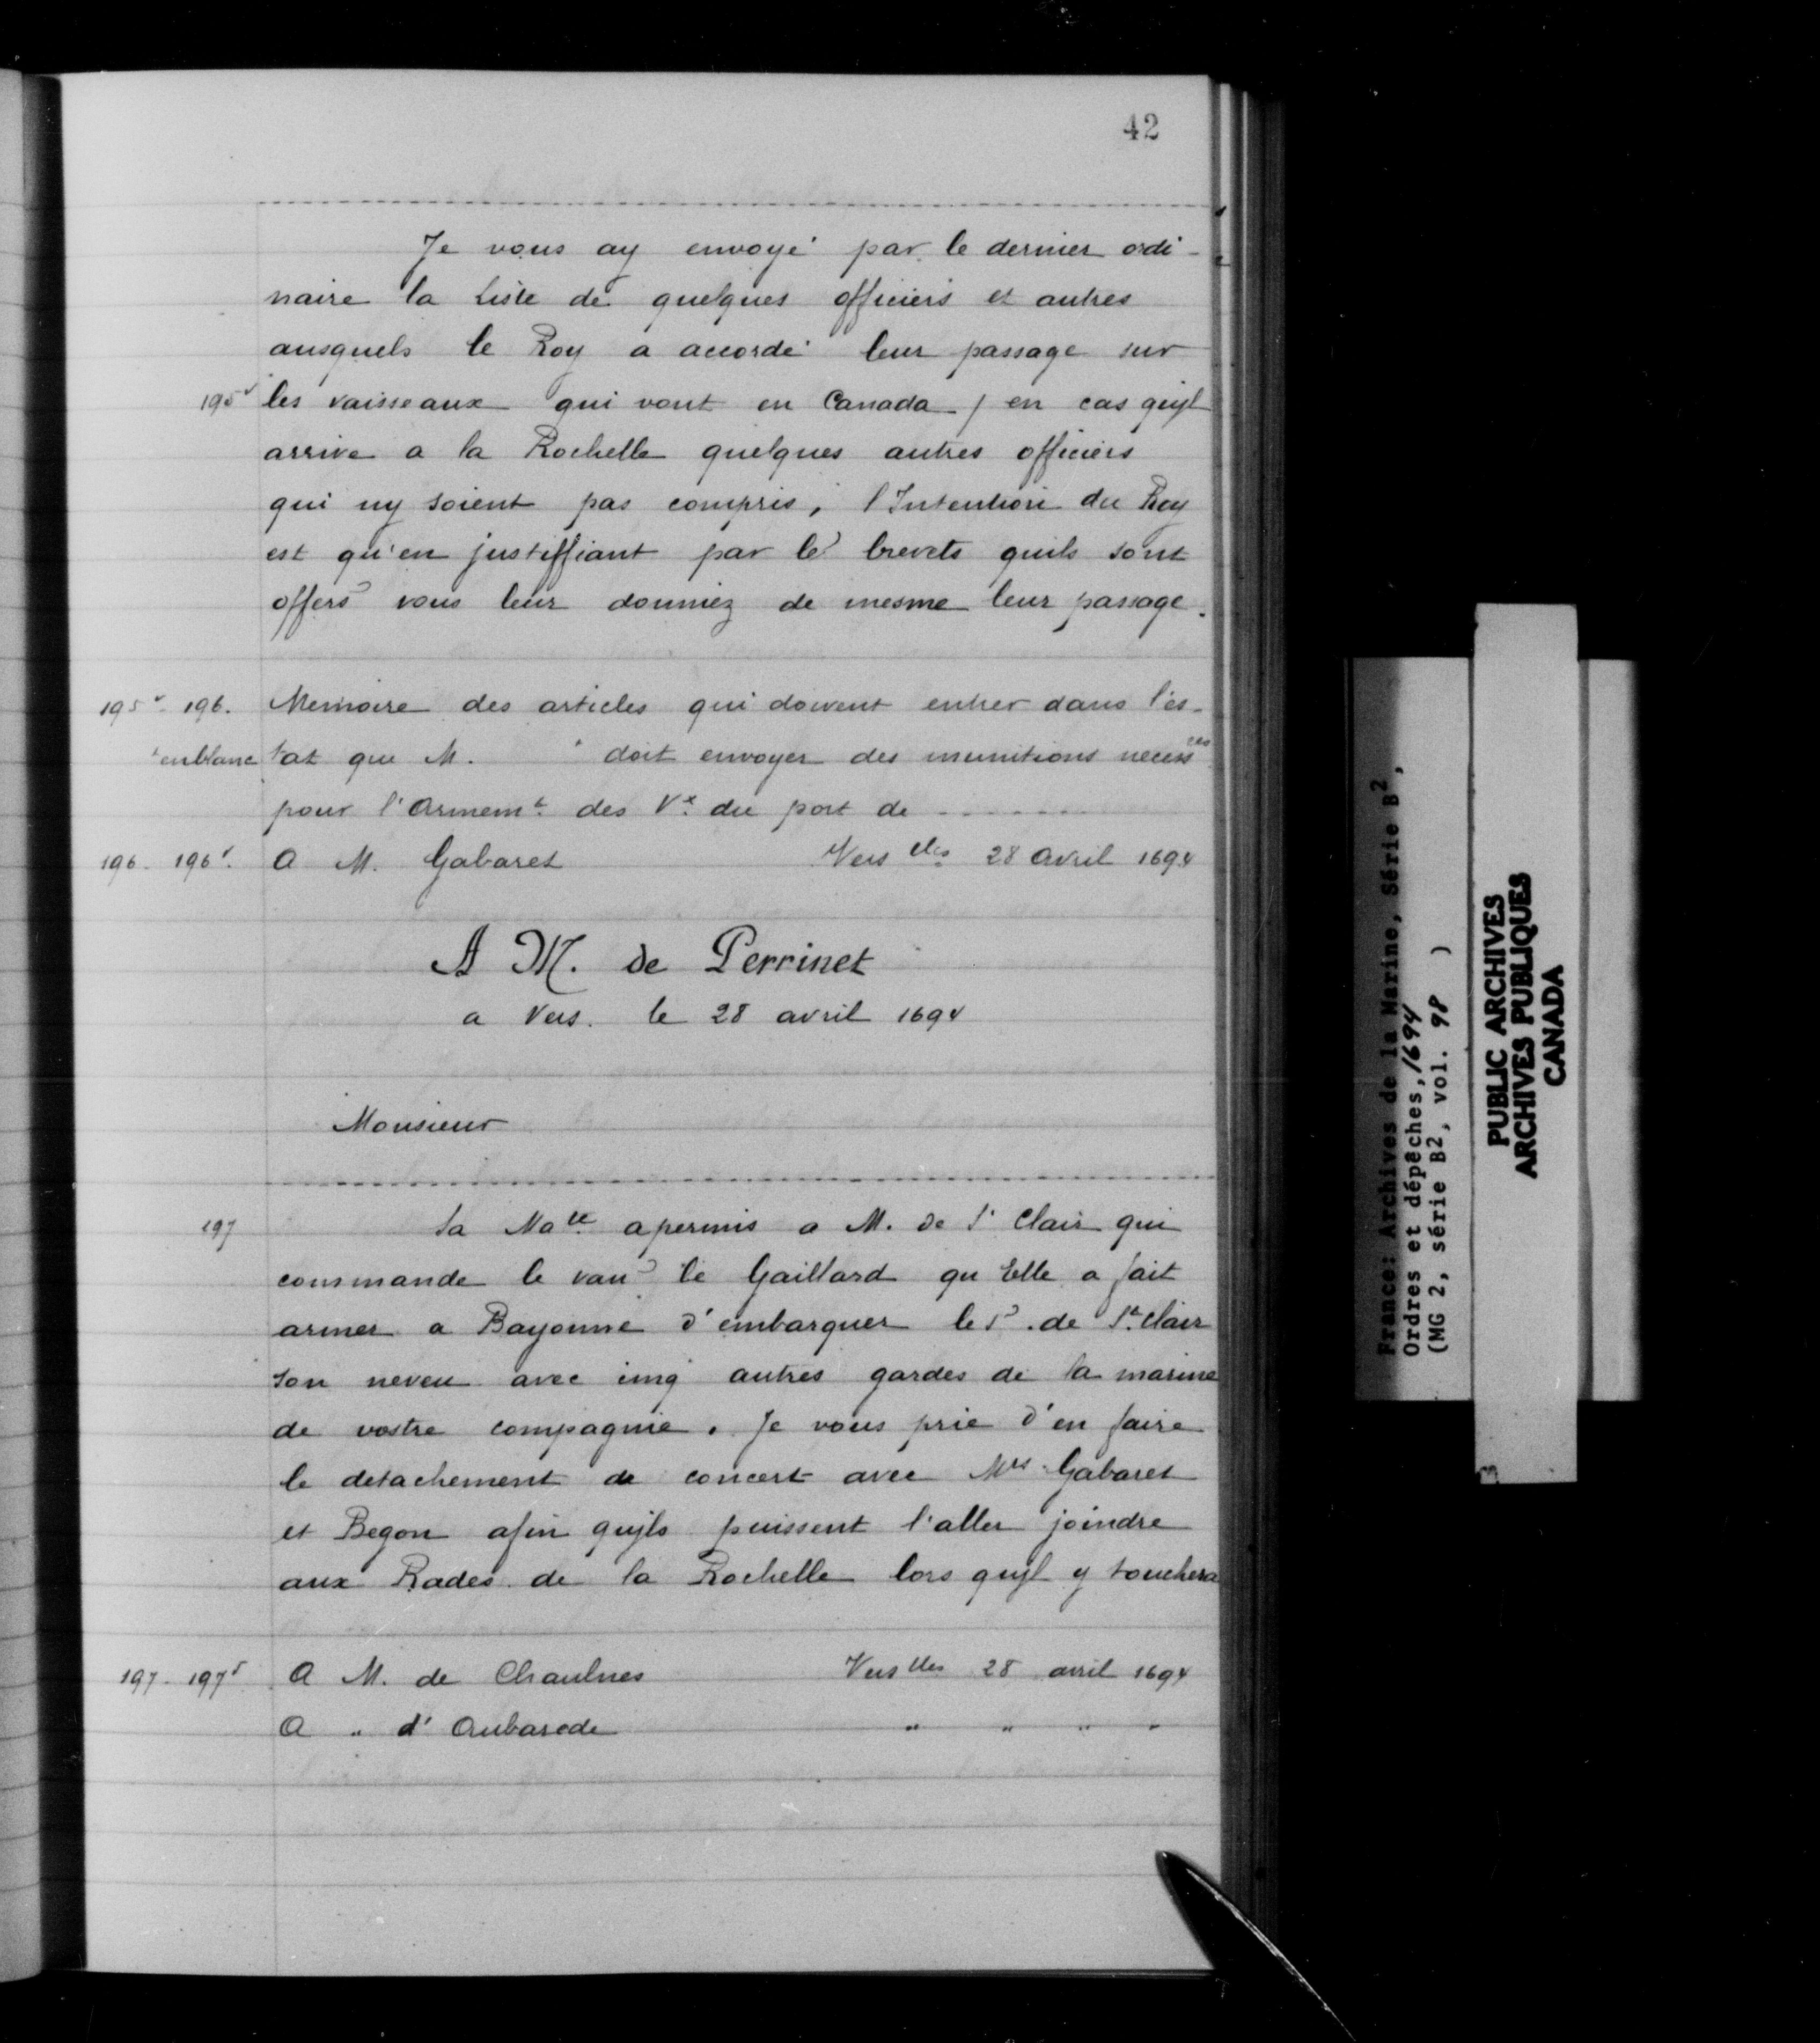 42
Je vous ay envoyé par le dernier ordi-
naire la liste de quelques officiers et autres
ausquels le Roy a accordé leur passage sur
195v les vaisseaux qui vont en Canada / en cas quyl
arrive a la Rochelle quelques autres officiers
qui ny soient pas compris, l'Intention du Roy
est qu'en justiffiant par les brevets quils sont
offers vous leur donniez de mesme leur passage.
195v - 196. Memoire des articles qui doivent entrer dans l'es-
* en blanc tat que M. * doit envoyer des munitions necessres
pour l'Armemt des Vx du port de ........
196 - 196v. A M. Gabaret Verslles 28 Avril 1694
A M. de Perrinet
a Vers. le 28 avril 1694
Monsieur
197 Sa Maté a permis a M. de St Clair qui
commande le vaus le Gaillard qu Elle a fait
armer a Bayonne d'embarquer le Sr. de St. Clair
son neveu avec cinq autres gardes de la marine
de vostre compagnie. Je vous prie d'en faire
le detachement de concert avec Mrs Gabaret
et Begon afin quyls puissent l'aller joindre
aux Rades de la Rochelle lors quyl y touchera
197 - 197v A M. de Chaulnes Verslles 28 avril 1694
A " d'Aubarede " " " "
France: Archives de la Marine, Série B2,
Ordres et dépêches, 1694
(MG 2, série B2, vol. 98 )
PUBLIC ARCHIVES
ARCHIVES PUBLIQUES
CANADA
3